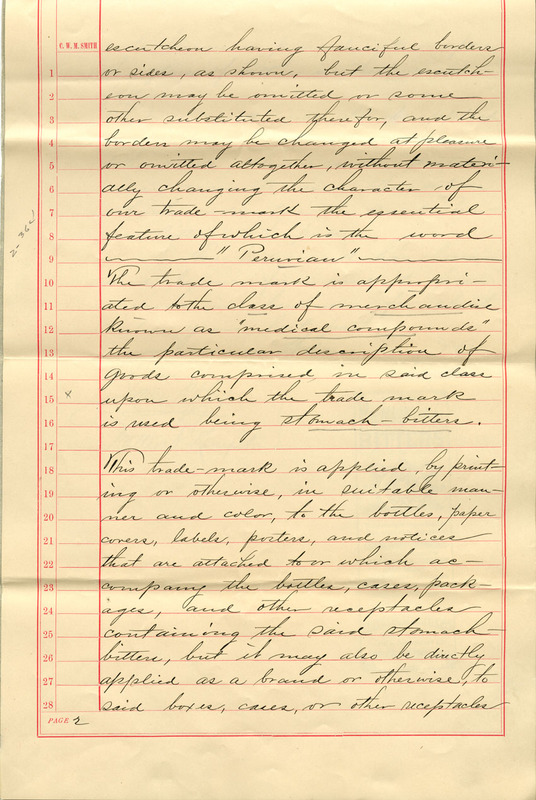 C. W. M. SMITH escutcheon having fanciful borders
1 or sides, as shown, but the escutch-
2 eon may be omitted or some
3 other substituted therefor, and the
4 borders may be changed at pleasure
5 or omitted altogether, without materi-
6 ally changing the character of
7 our trade-mark the essential
8 feature of which is the word
9 "Peruvian"
10 The trade mark is appropri-
11 ated to the class of merchandise
12 known as "medical compounds"
13 the particular description of
14 goods comprised in said class
15 x upon which the trade mark
16 is used being stomach-bitters.
17
18 This trade-mark is applied, by print-
19 ing or otherwise, in suitable man-
20 ner and color, to the bottles, paper
21 covers, labels, posters, and notices
22 that are attached to or which ac-
23 company the bottles, cases, pack-
24 ages, and other receptacles
25 containing the said stomach
26 bitters, but it may also be directly
27 applied as a brand or otherwise, to
28 said boxes, cases, or other receptacles
PAGE 2